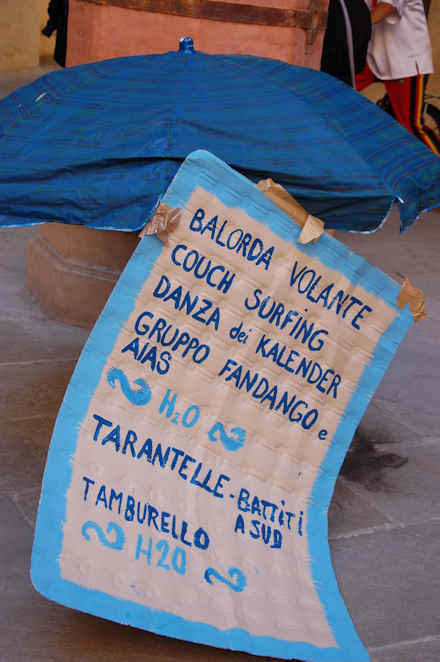 BALORDA VOLANTE
COUCH SURFING
DANZA dei KALENDER
GRUPPO FANDANGO e
AIAS
H2O
TARANTELLE - BATTITI
A SUD
TAMBURELLO
H2O